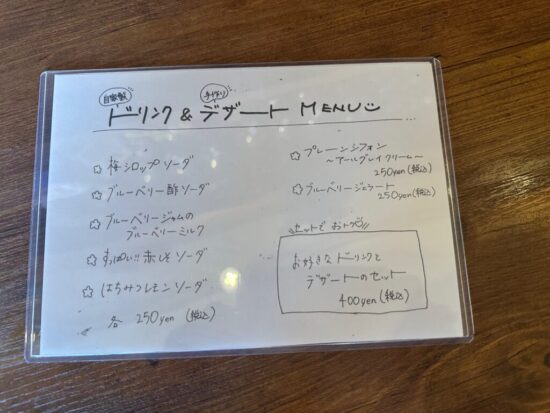 自家製 手作り
ドリンク & デザート MENU
☆ 梅シロップソーダ
☆ ブルーベリー酢ソーダ
☆ ブルーベリージャムの
ブルーベリーミルク
☆ すっぱい!! 赤しそソーダ
☆ はちみつレモンソーダ
各 250yen (税込)
☆ プレーンシフォン
~アールグレイクリーム~
250yen (税込)
☆ ブルーベリージェラート
250yen (税込)
セットでおトク
お好きなドリンクと
デザートのセット
400yen (税込)